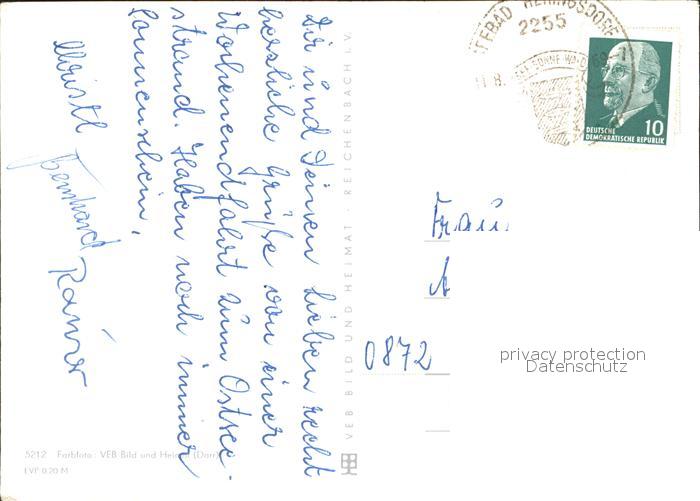 Dir und Deinen lieben recht
herzliche Grüße von einer
Wochenendfahrt zum Ostsee-
strand. Haben noch immer
Sonnenschein,
Christl
Bernhard
Rainer
VEB BILD UND HEIMAT · REICHENBACH I. V.
5212 Farbfoto: VEB Bild und Heimat (Darr)
EVP 0.20 M
HERINGSDORF
2255
DEUTSCHE
DEMOKRATISCHE REPUBLIK
10
Frau
A
0872
privacy protection
Datenschutz